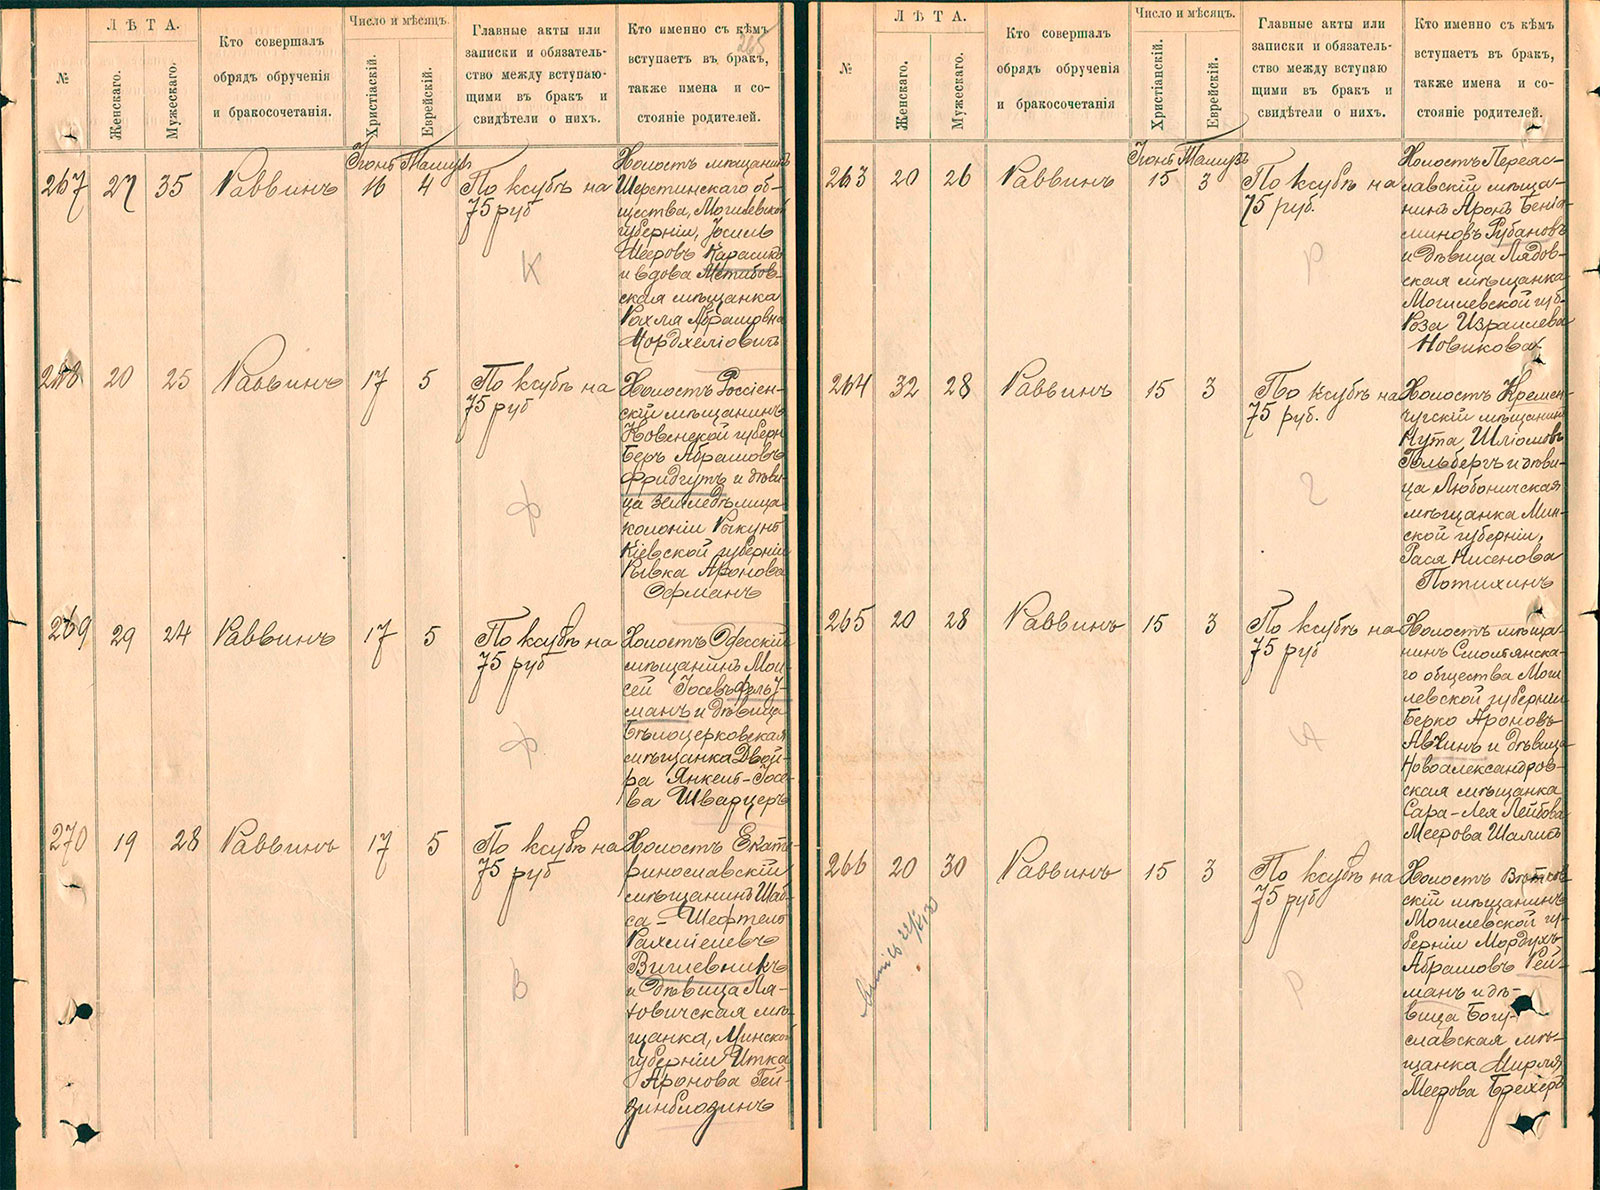 265
№
ЛѢТА.
Женскаго.
Мужескаго.
Кто совершалъ
обрядъ обрученія
и бракосочетанія.
Число и мѣсяцъ.
Христіаскій.
Еврейскій.
Главные акты или
записки и обязатель-
ство между вступаю-
щими въ бракъ и
свидѣтели о нихъ.
Кто именно съ кѣмъ
вступаетъ въ бракъ,
также имена и со-
стояніе родителей.
Іюнь Тамузъ
267 27 35 Раввинъ 16 4 По ксубѣ на
75 руб
К
Холостъ мѣщанинъ
Шерстинскаго об-
щества, Могилевской
губерніи, Іосиль
Шееровъ Карасикъ
и вдова
ская мѣщанка
Рохля Абрамовна
Мордхелевичъ
268 20 25 Раввинъ 17 5 По ксубѣ на
75 руб
Ф
Холостъ Россіен-
скій мѣщанинъ
Ковенской губерн
Беръ Абрамовъ
Фридгутъ и дѣви-
ца земледѣлица
колоніи Рыкунь
Кіевской губерніи
Ривка Аронова
Офманъ
269 29 24 Раввинъ 17 5 По ксубѣ на
75 руб
Ф
Холостъ Одесскій
мѣщанинъ Мои-
сей Іосевъ Фельд-
манъ и дѣвица
Бѣлоцерковская
мѣщанка Двой-
ра Янкель-Іосе-
ва Шварцеръ
270 19 28 Раввинъ 17 5 По ксубѣ на
75 руб
В
Холостъ Екате-
ринославскій
мѣщанинъ Шаб-
са-Шефтель
Рахміелевъ
Вигилевникъ
и дѣвица Ля-
ховичская мѣ-
щанка, Минской
губерніи Итка
Аронова Гей-
зинблюзинъ
№
ЛѢТА.
Женскаго.
Мужескаго.
Кто совершалъ
обрядъ обрученія
и бракосочетанія
Число и мѣсяцъ.
Христіанскій.
Еврейскій.
Главные акты или
записки и обязатель-
ство между вступаю
щими въ бракъ и
свидѣтели о нихъ.
Кто именно съ кѣмъ
вступаетъ въ бракъ,
также имена и со-
стояніе родителей.
Іюнь Тамузъ
263 20 26 Раввинъ 15 3 По ксубѣ на
75 руб.
Р
Холостъ Переяс-
лавскій мѣща-
нинъ Аронъ Беніа-
миновъ Рубановъ
и дѣвица Лядов-
ская мѣщанка
Могилевской губ-
Роза Израилева
Новикова
264 32 28 Раввинъ 15 3 По ксубѣ на
75 руб.
Г
Холостъ Кремен-
чугскій мѣщанинъ
Нута Шліомовъ
Гольбергъ и дѣви-
ца Любоничская
мѣщанка Мин-
ской губерніи,
Рася Нисенова
Потихинъ
265 20 28 Раввинъ 15 3 По ксубѣ на
75 руб
А
Холостъ мѣща-
нинъ Смольянска-
го общества Моги-
левской губерніи
Берко Ароновъ
Авчинъ и дѣвица
Новоалександров-
ская мѣщанка
Сара-Лея Лейбова
Меерова Шалитъ
266 20 30 Раввинъ 15 3 По ксубѣ на
75 руб
Р
Холостъ
скій мѣщанинъ
Могилевской гу-
берніи Мордухъ
Абрамовъ Рей-
манъ и дѣ-
вица Богу-
славская мѣ-
щанка Мирля
Меерова Брехеръ